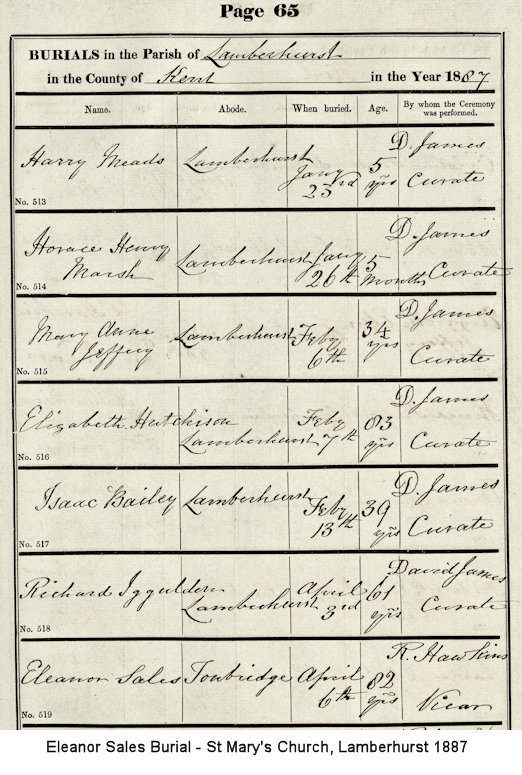 Page 65
BURIALS in the Parish of Lamberhurst
in the County of Kent in the Year 1887
Name. Abode. When buried. Age. By whom the Ceremony was performed.
Harry Meads Lamberhurst Jany 23rd 5 yrs D. James Curate
No. 513
Horace Henry Marsh Lamberhurst Jany 26th 5 Months D. James Curate
No. 514
Mary Anne Jeffery Lamberhurst Feby 6th 34 yrs D. James Curate
No. 515
Elizabeth Hutchison Lamberhurst Feby 7th 83 yrs D. James Curate
No. 516
Isaac Bailey Lamberhurst Feby 13th 39 yrs D. James Curate
No. 517
Richard Iggulden Lamberhurst April 3rd 61 yrs David James Curate
No. 518
Eleanor Sales Tonbridge April 6th 82 yrs R. Hawkins Vicar
No. 519
Eleanor Sales Burial - St Mary's Church, Lamberhurst 1887